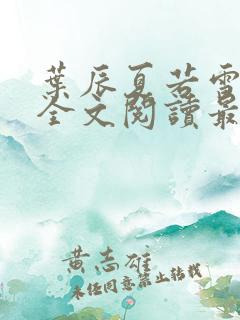 葉辰夏若雪
全文閱讀最
黃志雄
未經同意禁止轉載